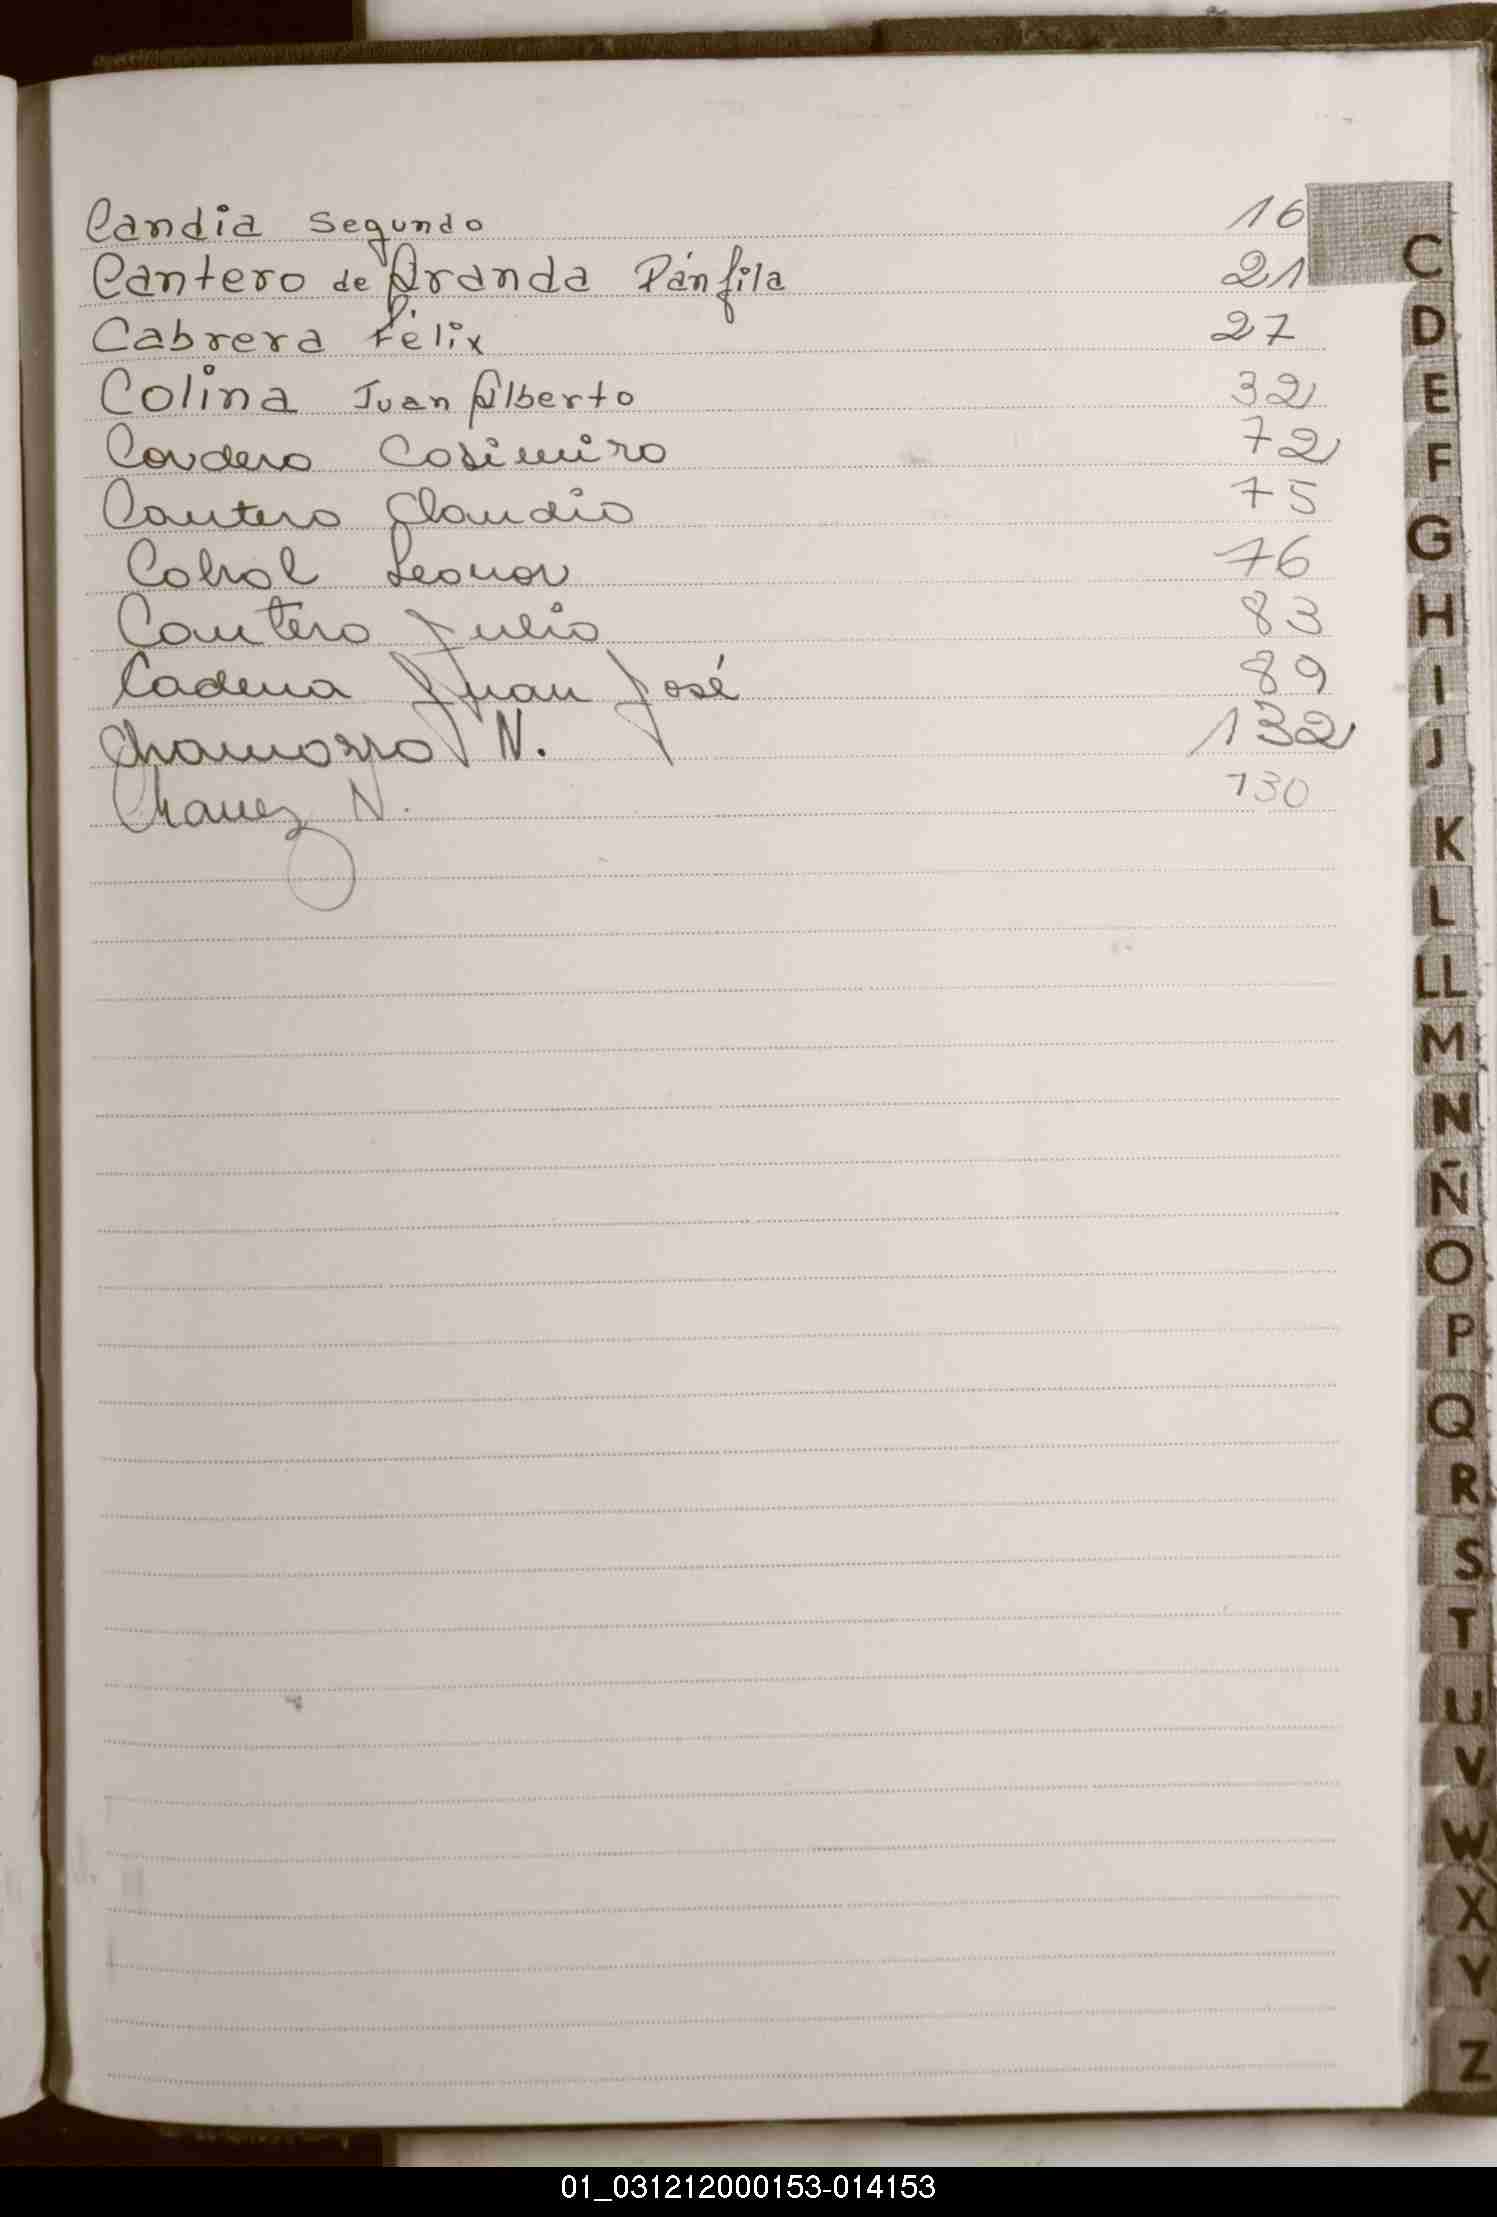 Candia Segundo 16
Cantero de Aranda Pánfila 21
Cabrera Félix 27
Colina Juan Alberto 32
Cordero Casimiro 72
Cantero Claudio 75
Cabral Leonor 76
Cantero Julio 83
Cadena Juan José 89
Chamorro N. 132
Chavez N. 130
C
D
E
F
G
H
I
J
K
L
LL
M
N
Ñ
O
P
Q
R
S
T
U
V
W
X
Y
Z
01_031212000153-014153